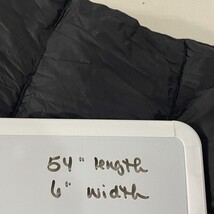 54" length
6" width